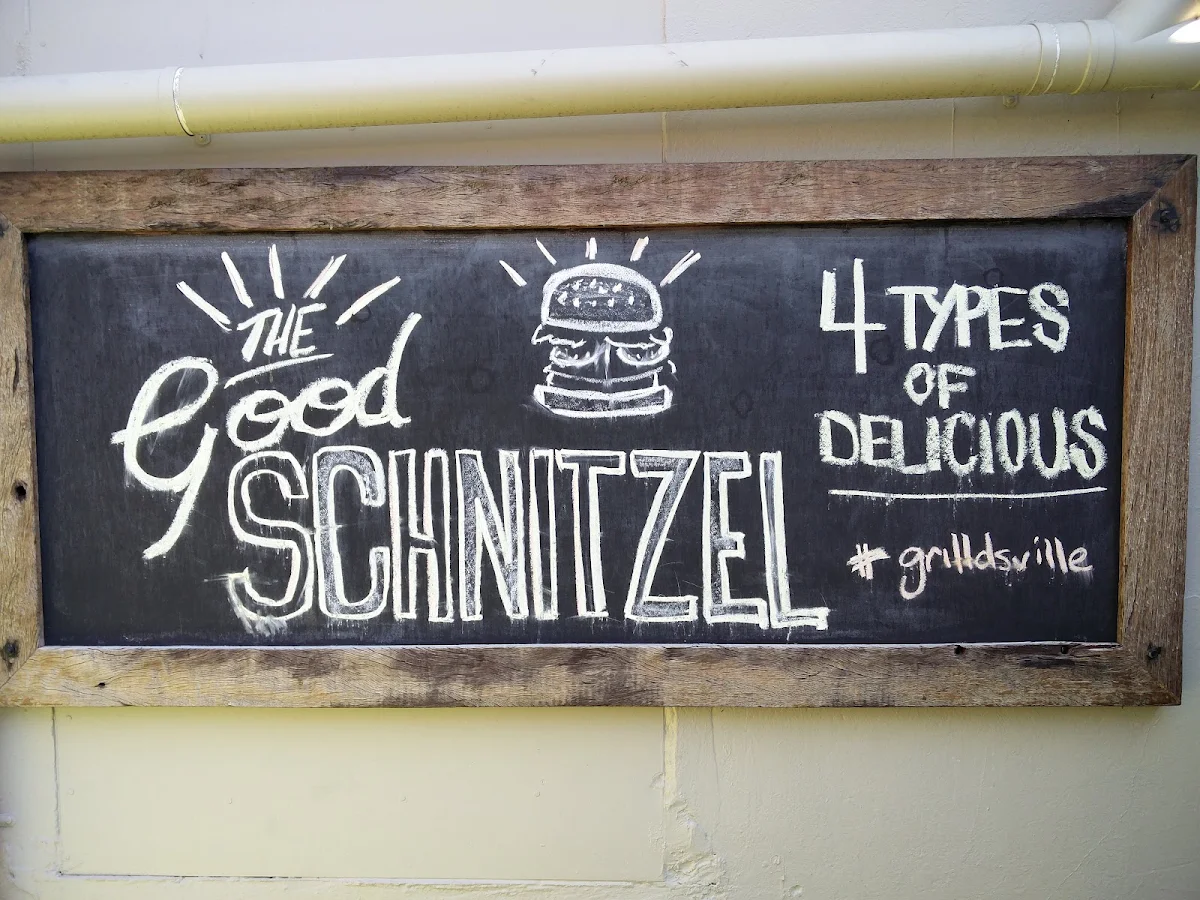 THE
Good
SCHNITZEL
4 TYPES
OF
DELICIOUS
# grilldsville